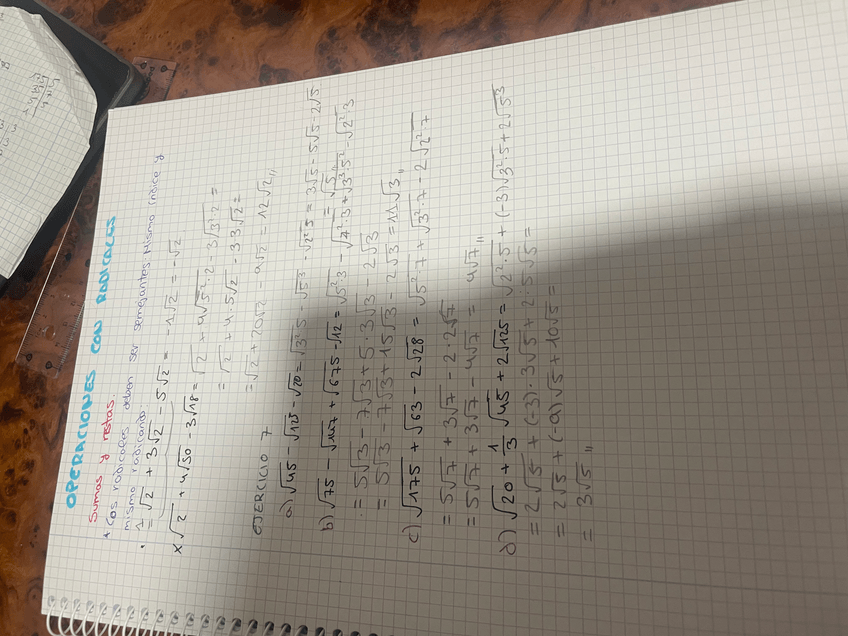 OPERACIONES CON RADICALES
Sumas y restas.
* Los radicales deben ser semejantes. Mismo índice y
mismo radicando.
• 1√2 + 3√2 - 5√2 = -1√2 = -√2
* √2 + 4√50 - 3√18 = √2 + 4√5²·2 - 3√3²·2 =
= √2 + 4·5√2 - 3·3√2 =
= √2 + 20√2 - 9√2 = 12√2,,
EJERCICIO 7
a) √45 - √125 - √20 = √3²·5 - √5³ - √2²·5 = 3√5 - 5√5 - 2√5
b) √75 - √147 + √675 - √12 = √5²·3 - √7²·3 + √3³·5² - √2²·3
= 5√3 - 7√3 + 5·3√3 - 2√3
= 5√3 - 7√3 + 15√3 - 2√3 = 11√3,,
c) √175 + √63 - 2√28 = √5²·7 + √3²·7 - 2√2²·7
= 5√7 + 3√7 - 2·2√7
= 5√7 + 3√7 - 4√7 = 4√7,,
d) √20 + 1/3 √45 + 2√125 = √2²·5 + (-3)√3²·5 + 2√5³
= 2√5 + (-3)·3√5 + 2·5√5 =
= 2√5 + (-9)√5 + 10√5 =
= 3√5,,